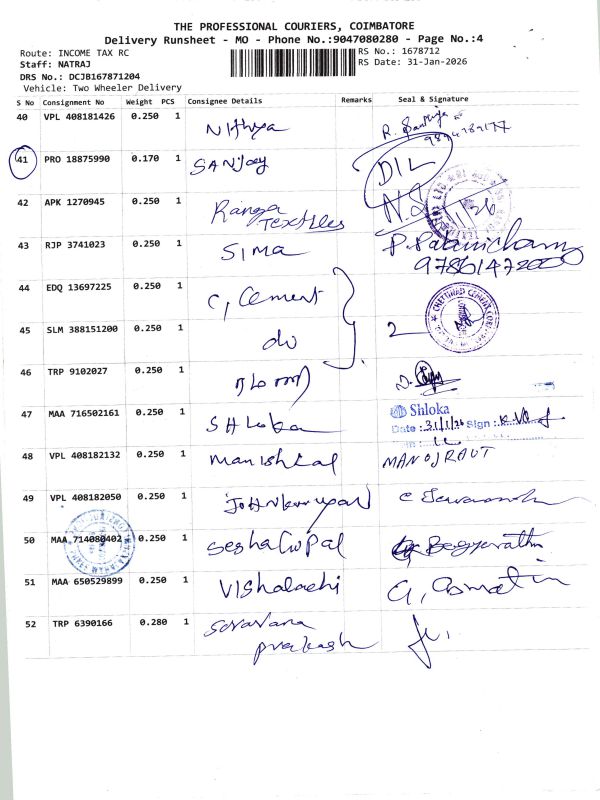 THE PROFESSIONAL COURIERS, COIMBATORE
Delivery Runsheet - MO - Phone No.:9047080280 - Page No.:4
Route: INCOME TAX RC
RS No.: 1678712
Staff: NATRAJ
RS Date: 31-Jan-2026
DRS No.: DCJB167871204
Vehicle: Two Wheeler Delivery
S No Consignment No Weight PCS Consignee Details Remarks Seal & Signature
40 VPL 408181426 0.250 1 Nithya
41 PRO 18875990 0.170 1 SANJOY DIL
42 APK 1270945 0.250 1 Ranga Textiles N.S
43 RJP 3741023 0.250 1 SIMA P. Palanichamy
44 EDQ 13697225 0.250 1 C, Cement
45 SLM 388151200 0.250 1 do 2
46 TRP 9102027 0.250 1
47 MAA 716502161 0.250 1 SHLoka Shloka
Date :31/1/26 Sign :
48 VPL 408182132 0.250 1 Manishlal MANOJ RAUT
49 VPL 408182050 0.250 1
50 MAA 714080402 0.250 1 Sesha Gopal
51 MAA 650529899 0.250 1 Vishalachi
52 TRP 6390166 0.280 1 Saravana
prakash